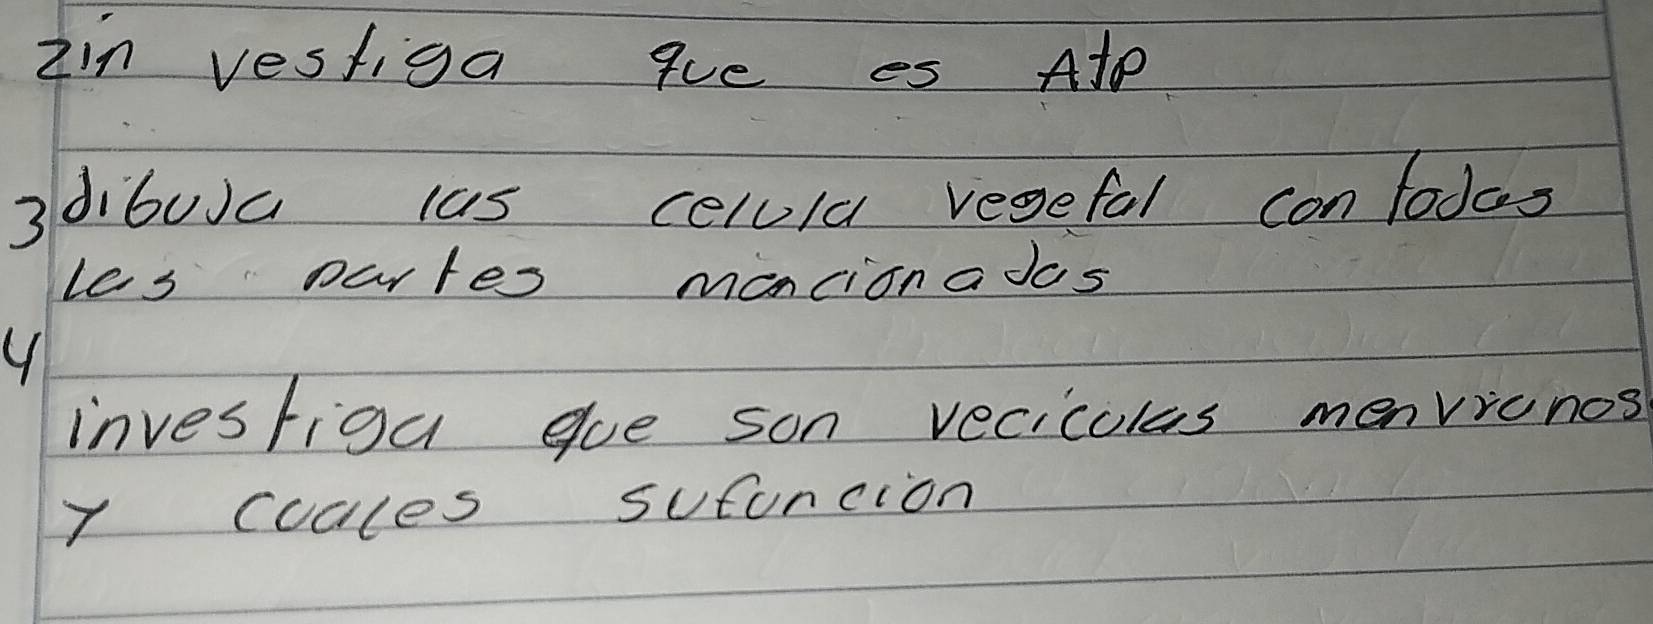 2in vestiga que es Atp
3 dibuja las celula vegetal con todas
las partes mencionadas
4
investiga que son veciculas menvranos
y cuales sufuncion